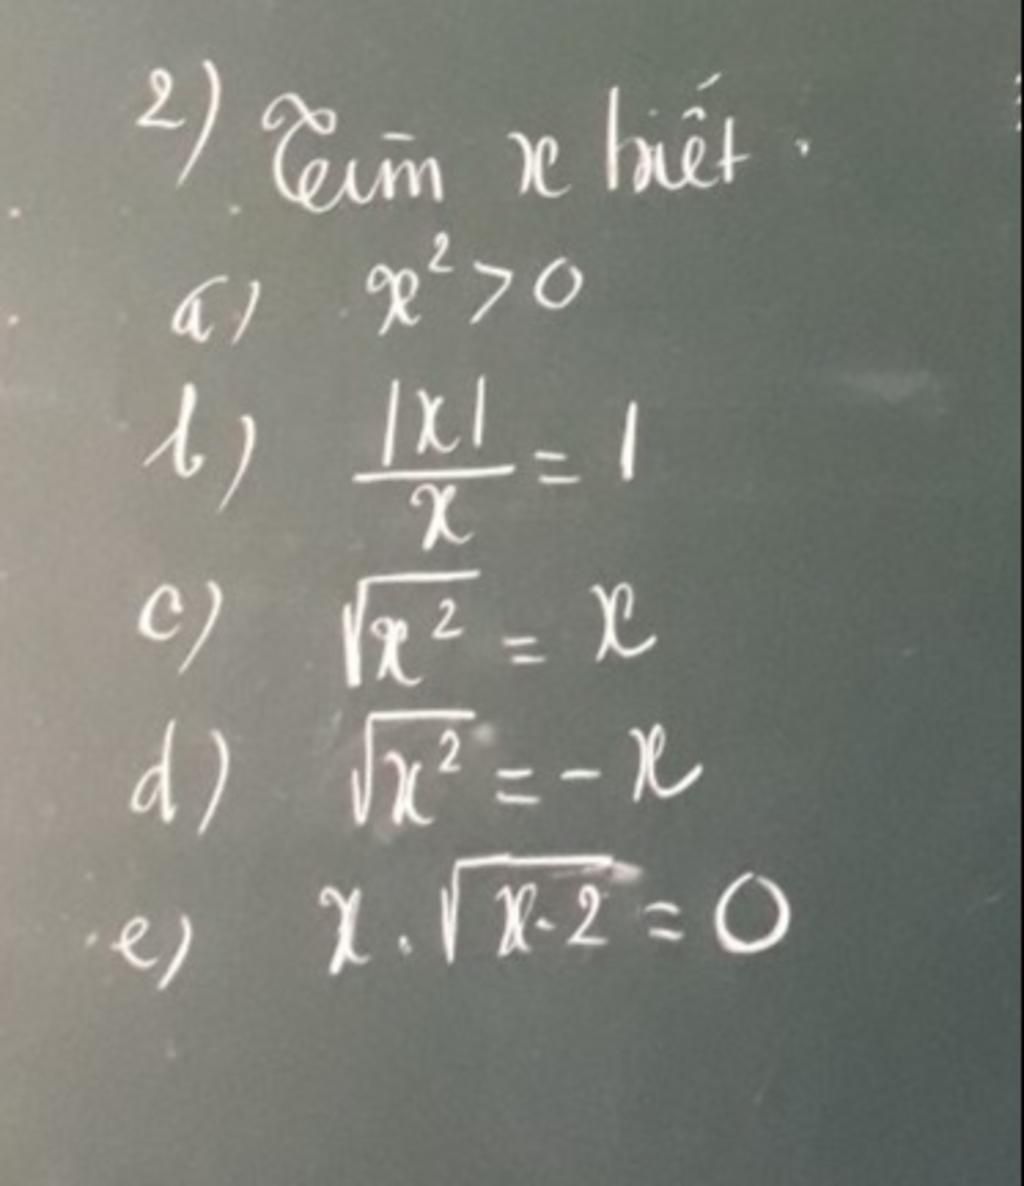 2) Tìm x biết.
a) x² > 0
b) |x|/x = 1
c) √x² = x
d) √x² = -x
e) x . √x-2 = 0